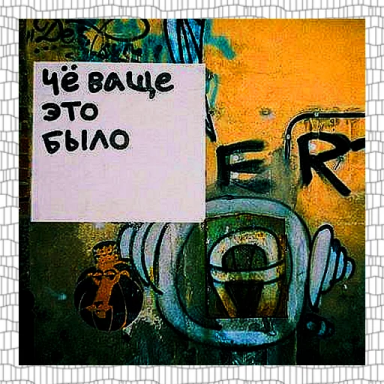 чё ваще
это
было
ER